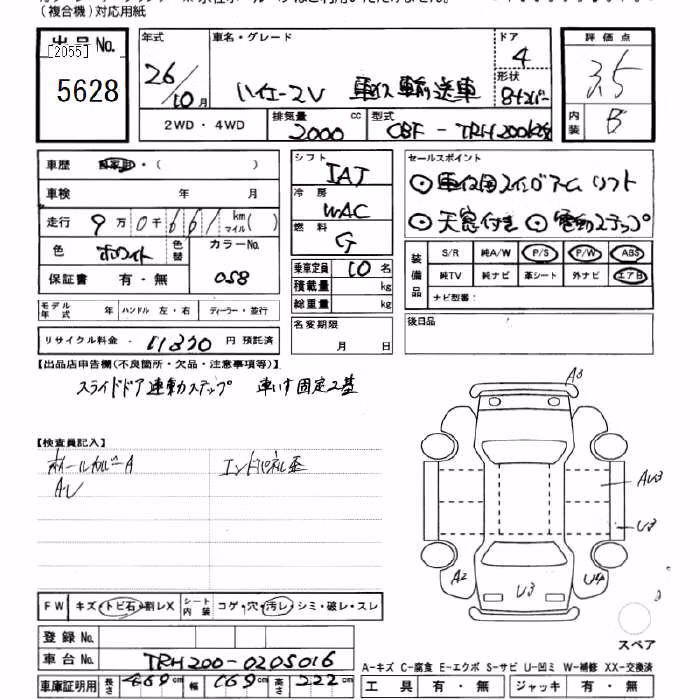 (複合機)対応用紙
出品No.
[2055]
5628
年式
26/10月
車名・グレード
ハイエースV 車イス輸送車
ドア
4
形状
評価点
3.5
内装
B
2WD・4WD
排気量 2000 cc
型式 CBF-TRH200K改
車歴 自家用・( )
車検 年 月
走行 9万0千661 km マイル( )
色 ホワイト
色替
カラーNo. 058
保証書 有・無
モデル年式 年
ハンドル 左・右
ディーラー・並行
リサイクル料金 11330 円預託済
シフト IAT
冷房 WAC
燃料 G
乗車定員 10 名
積載量 kg
総重量 kg
名変期限 月 日
セールスポイント
⊙車イス用スイングアームリフト
⊙天窓付き ⊙電動ステップ
装備品
S/R 純A/W P/S P/W ABS
純TV 純ナビ 革シート 外ナビ エアB
ナビ型番:
後日品
【出品店申告欄(不良箇所・欠品・注意事項等)】
スライドドア連動ステップ 車いす固定2基
【検査員記入】
ホイールカバーA エンドパネル歪
AU
A3
AU3
U3
A2
U3
U4
スペア
FW キズ・トビ石・割レX
シート内装 コゲ・穴・汚レ・シミ・破レ・スレ
登録No.
車台No. TRH200-0205016
車庫証明用 長さ 469cm 幅 169cm 高さ 222cm
A-キズ C-腐食 E-エクボ S-サビ U-凹ミ W-補修 XX-交換済
工具 有・無 ジャッキ 有・無